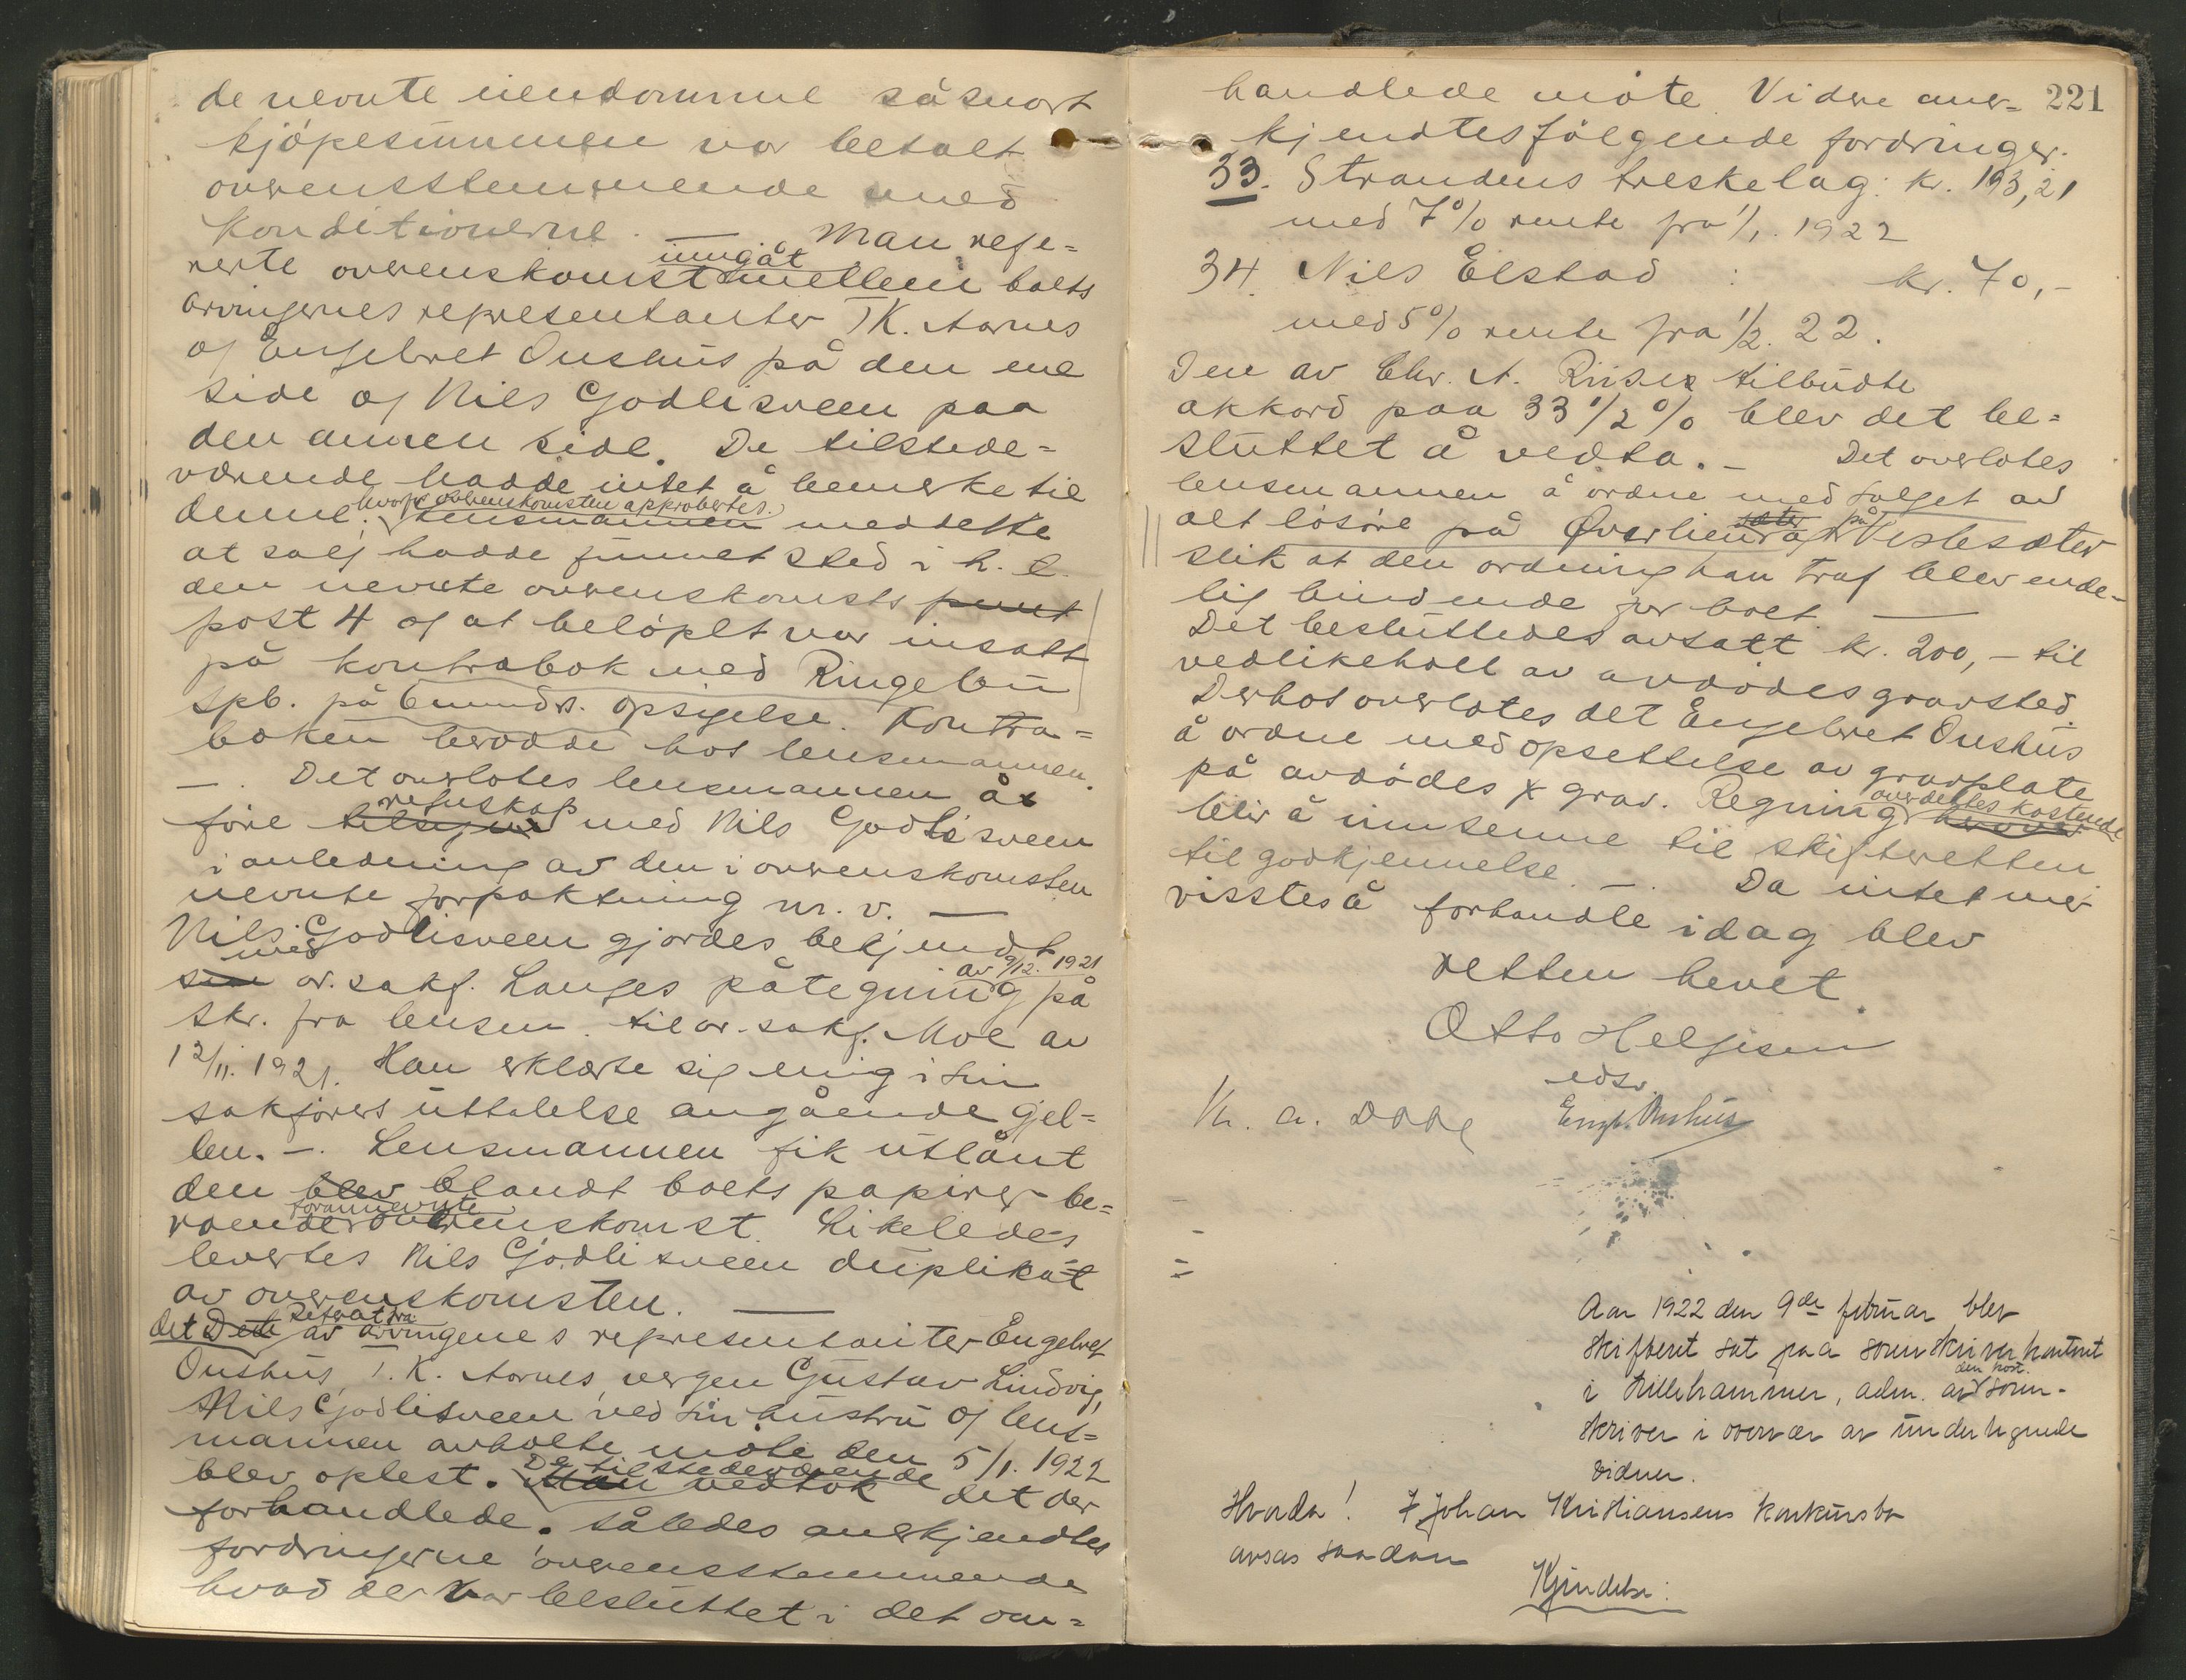 de nevnte eiendomme såsnart
kjöpesummen var betalt
overensstemmende med
konditionerne. — Man refe=
rerte overenskomst inngåt mellem boets
arvingernes representanter T K. Aarnes
og Engebret Onshus på den ene
side og Nils Godlisveen paa
den annen side. De tilstede=
værende hadde intet å bemerke til
denne. hvorpå overenskomsten approbertes. Lensmannen meddelte
at salg hadde funnet sted i h. t.
den nevnte overenskomsts punt
post 4 og at belöpet var insatt
på kontrabok med Ringebu
spb. på 6 mndrs. opsigelse. Kontra=
boken beroede hos lensmannen.
—. Det overlotes lensmannen å
före refnskap med Nils Godlisveen
i anledning av den i overenskomsten
nevnte forpaktning m. v. —
Nils Godlisveen gjordes bekjendt
med or. sakf. Langes påtegning av 9/12. 1921 på
skr. fra lensm. til or. sakf. Moe av
12/11. 1921. Han erklærte sig enig i sin
sakförers uttalelse angående gjel-
len. —. Lensmannen fik utlånt
den blev blandt boets papirer be=
roende forannevnte overenskomst. Likeledes
levertes Nils Godlisveen duplikat
av overenskomsten. —
det Dete Referat fra av arvingenes representanter Engebret
Onshus, T. K. Aarnes, vergen Gustav Lindvig,
Nils Godlisveen ved sin hustru og lens=
mannen avholte möte den 5/1. 1922
blev oplest. De tilstedeværende Man vedtok det der
forhandlede. således anerkjendtes
fordringerne overensstemmende
hvad der var besluttet i det om=
221
handlede möte Videre aner=
kjendtes fölgende fordringer.
33. Strandens treskelag: kr. 193,21
med 7% rente fra 1/1. 1922
34. Nils Elstad : kr. 70,-
med 5% rente fra 1/2. 22.
Den av Chr. A. Riiser tilbudte
akkord paa 33 1/2 % blev det be=
sluttet å vedta. — Det overlotes
lensmannen å ordne med salget av
alt lösöre på Överlien og på Veslesæter
slik at den ordning han traf blev ende-
lig bindende for boet. —
Det besluttedes avsatt kr. 200,- til
vedlikeholl av avdödes gravsted.
Derhos overlotes det Engebret Onshus
å ordne med opsettelse av gravplate
på avdödes grav. Regning over dettes kostende
blir å innsenne til skifteretten
til godkjennelse. —. Da intet mer
visstes å forhandle idag blev
retten hevet.
Otto Helgesen
edsv.
Engb. Onshus
Aar 1922 den 9de februar blev
skifteret sat paa sorenskriverkontoret
i Lillehammer, adm. av den kost. soren-
skriver i overvær av undertegnede
vidner.
Hvorda! I Johan Kristiansens konkursbo
avsas saadan
Kjendelse: